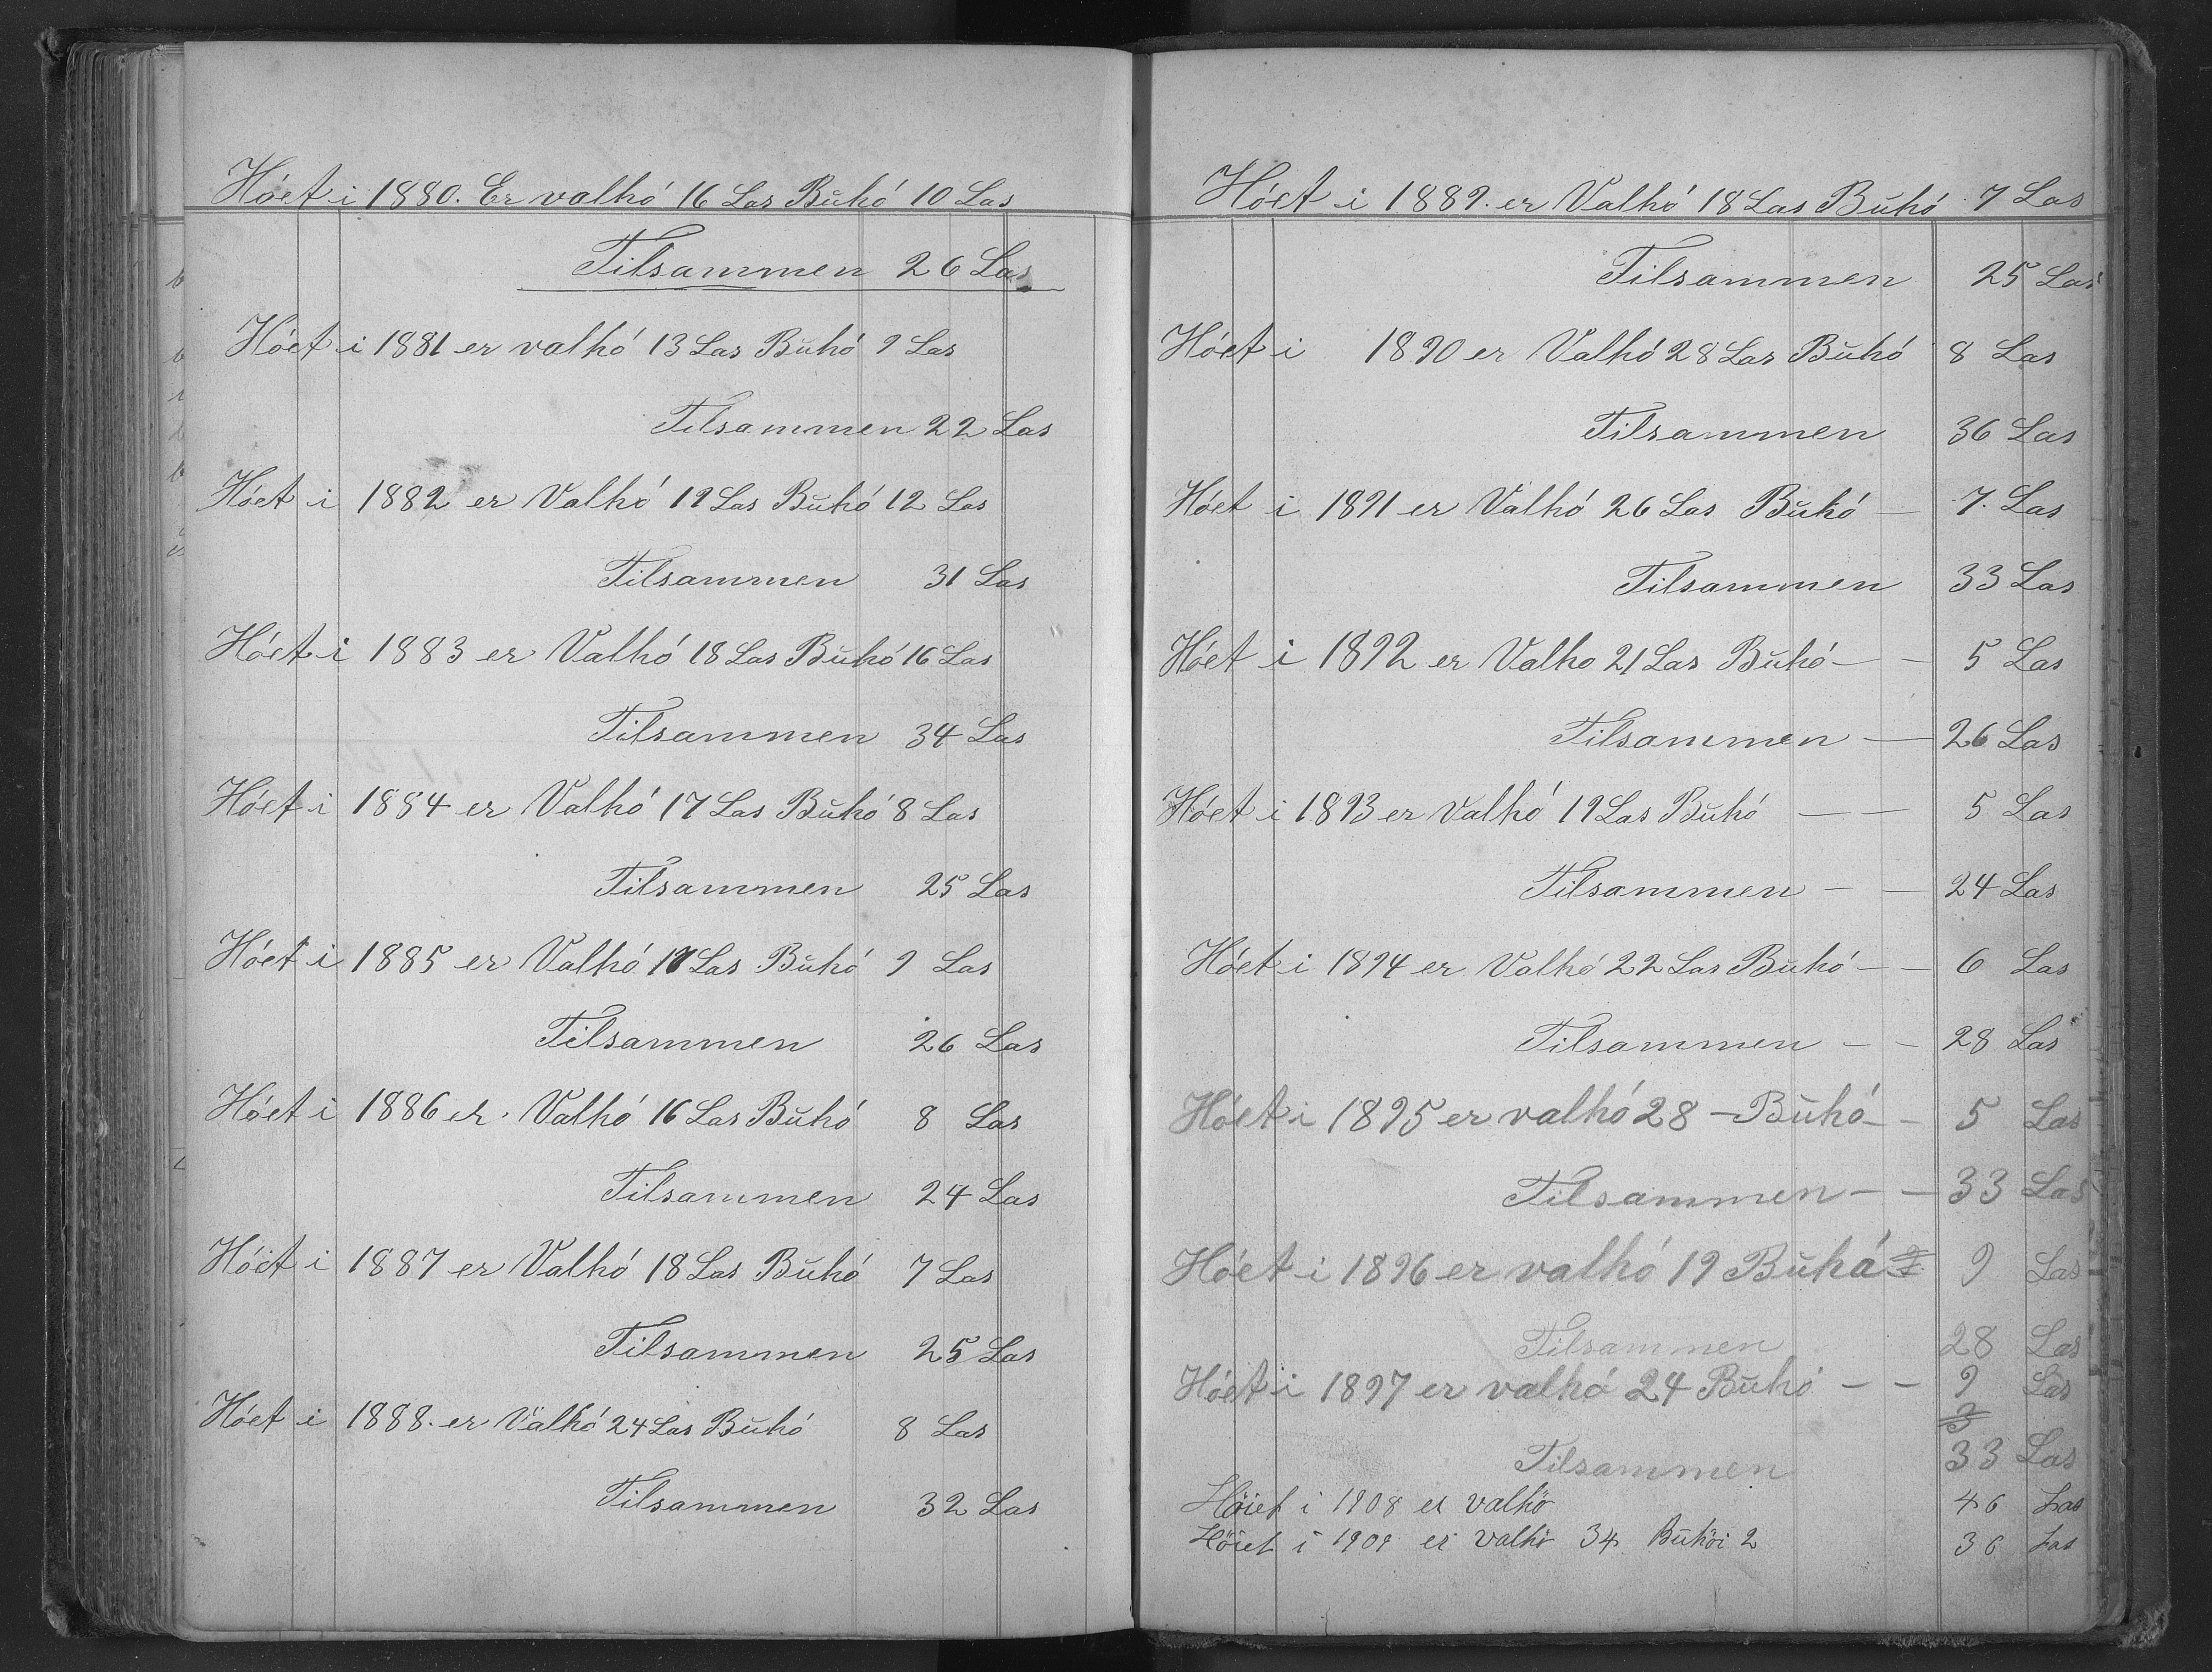 Hóet i 1880. Er valhó 16 Las Buhó 10 Las
Tilsammen 26 Las
Hóet i 1881 er valhó 13 Las Buhó 9 Las
Tilsammen 22 Las
Hóet i 1882 er Valhó 19 Las Buhó 12 Las
Tilsammen 31 Las
Hóet i 1883 er Valhó 18 Las Buhó 16 Las
Tilsammen 34 Las
Hóet i 1884 er Valhó 17 Las Buhó 8 Las
Tilsammen 25 Las
Hóet i 1885 er Valhó 17 Las Buhó 9 Las
Tilsammen 26 Las
Hóet i 1886 er Valhó 16 Las Buhó 8 Las
Tilsammen 24 Las
Hóet i 1887 er Valhó 18 Las Buhó 7 Las
Tilsammen 25 Las
Hóet i 1888. er Valhó 24 Las Buhó 8 Las
Tilsammen 32 Las
Hóet i 1889. er Valhó 18 Las Buhó 7 Las
Tilsammen 25 Las
Hóet i 1890 er Valhó 28 Las Buhó 8 Las
Tilsammen 36 Las
Hóet i 1891 er Valhó 26 Las Buhó — 7. Las
Tilsammen 33 Las
Hóet i 1892 er Valho 21 Las Buhó — — 5 Las
Tilsammen — 26 Las
Hóet i 1893 er Valhó 19 Las Buhó — — 5 Las
Tilsammen — — 24 Las
Hóet i 1894 er Valhó 22 Las Buhó — — 6 Las
Tilsammen — — 28 Las
Hóet i 1895 er valhó 28 — Buhó — — 5 Las
Tilsammen — — 33 Las
Hóet i 1896 er valhó 19 Buhó 9 Las
Tilsammen 28 Las
Hóet i 1897 er valhó 24 Buhó — — 9 Las
Tilsammen 33 Las
Höiet i 1908 er valhö 46 Las
Höiet i 1909 er valhö 34 Buhöi 2 36 Las